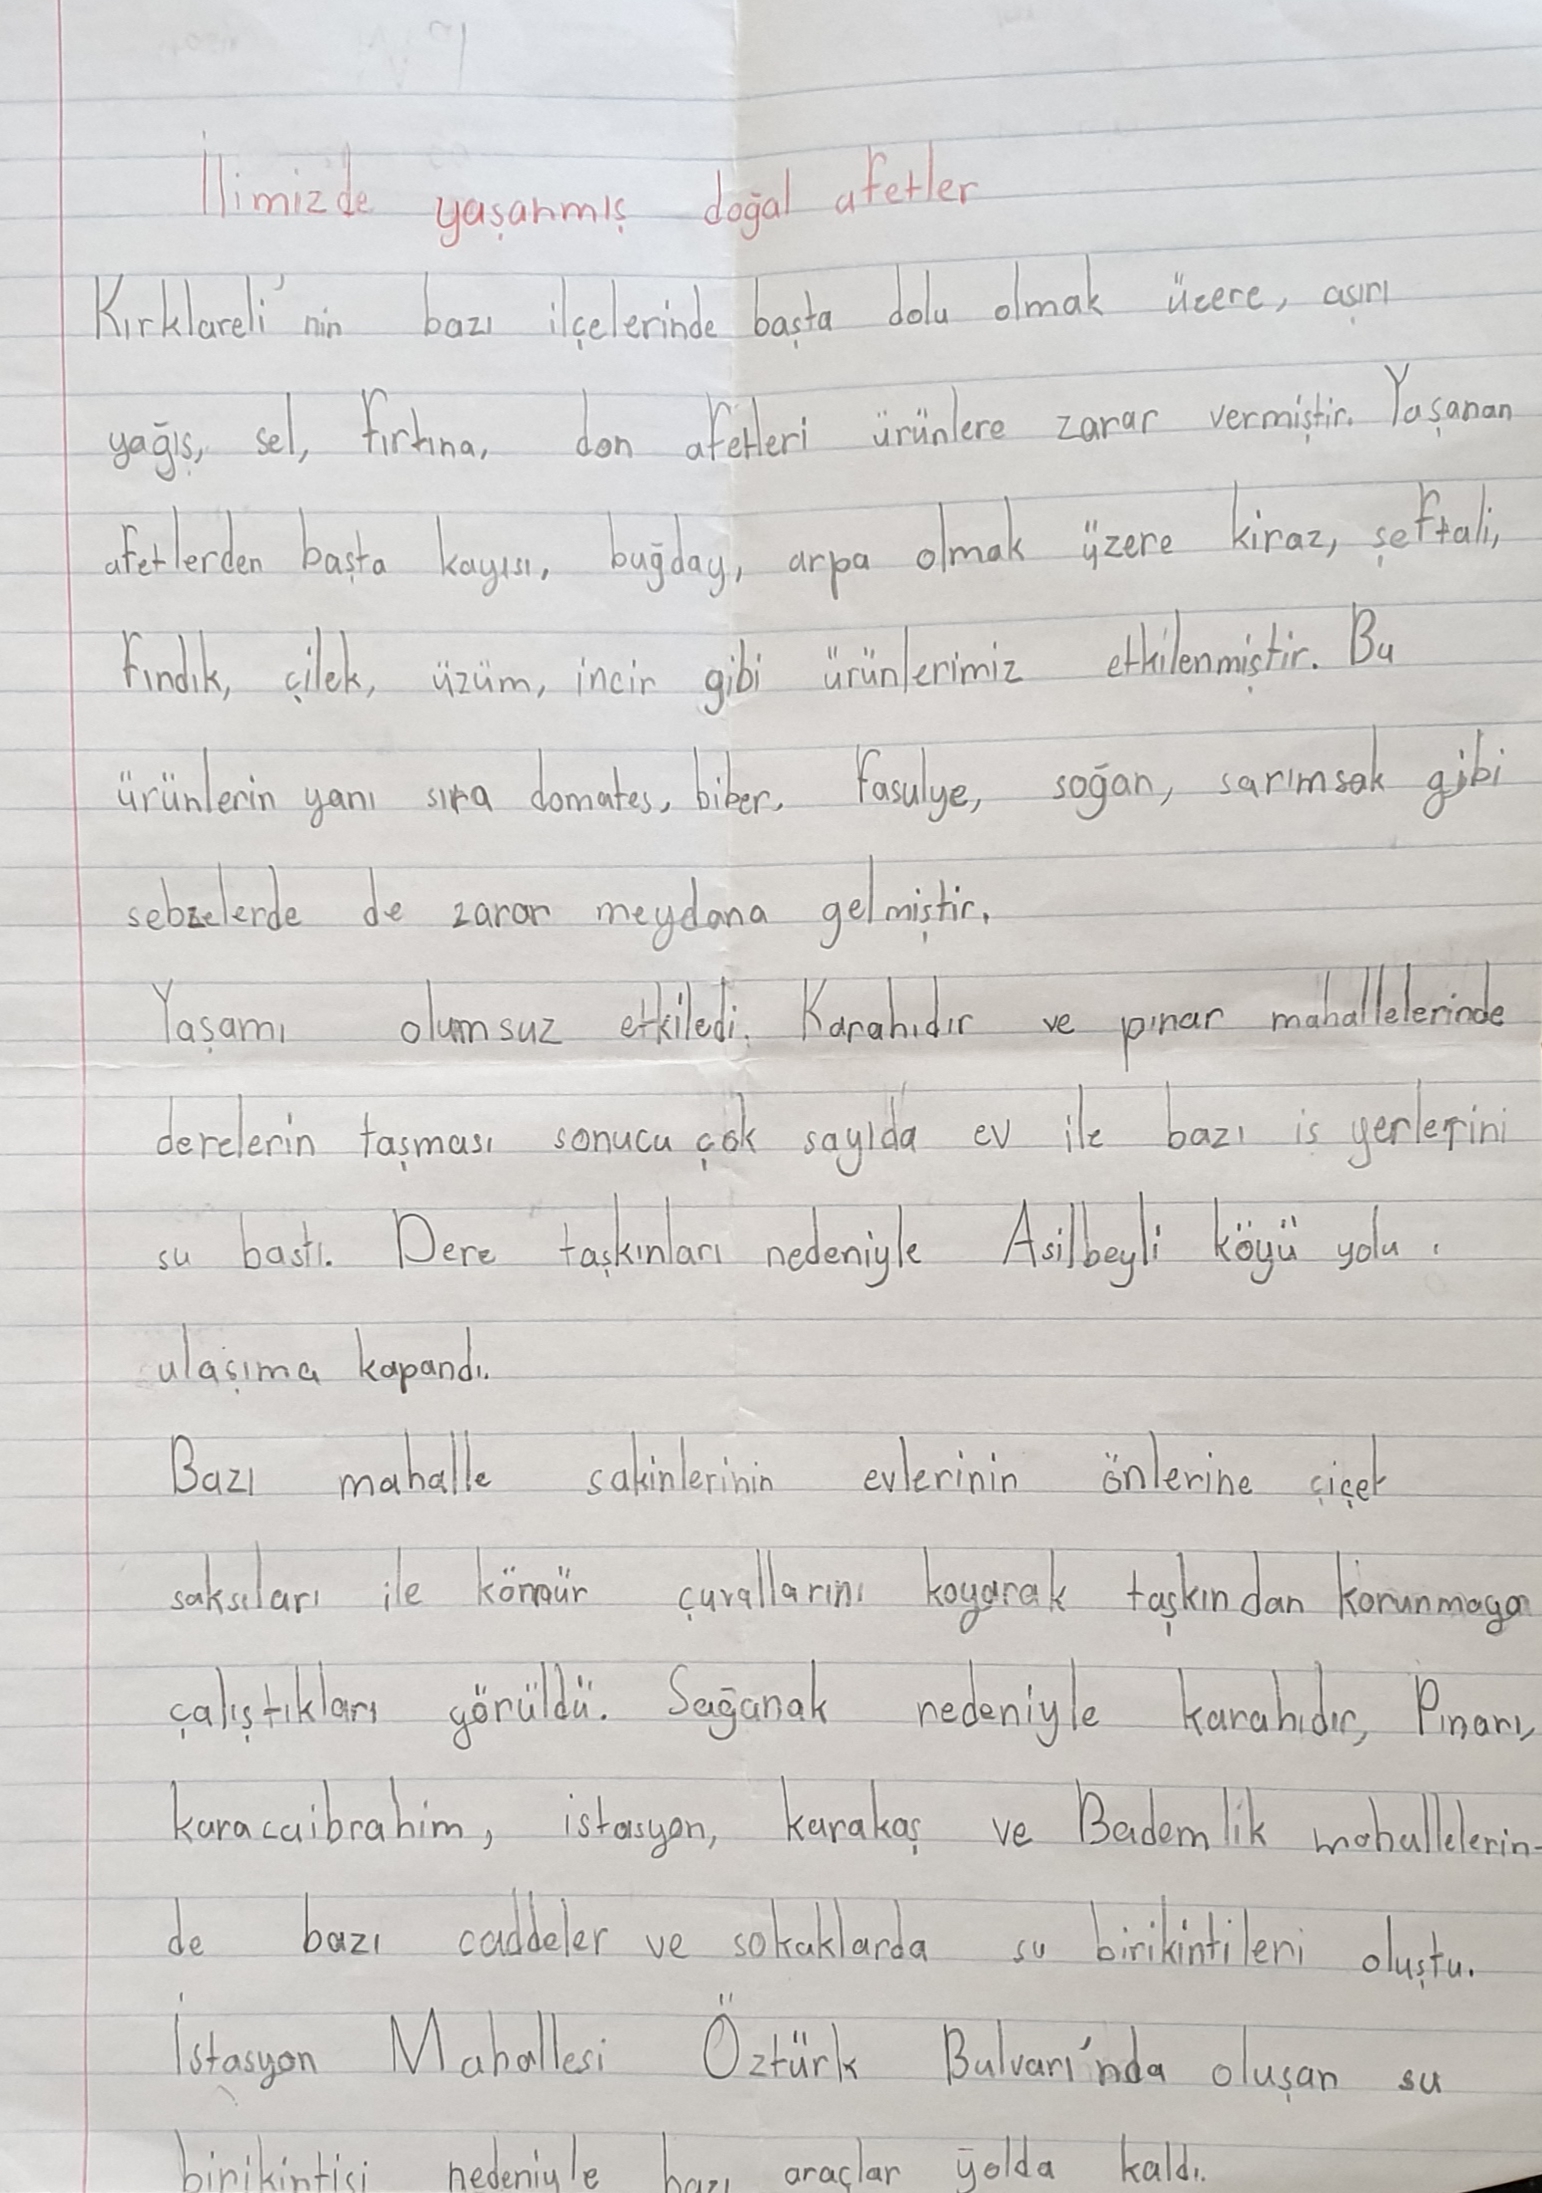 İlimizde yaşanmış doğal afetler
Kırklareli'nin bazı ilçelerinde başta dolu olmak üzere, aşırı
yağış, sel, fırtına, don afetleri ürünlere zarar vermiştir. Yaşanan
afetlerden başta kayısı, buğday, arpa olmak üzere kiraz, şeftali,
fındık, çilek, üzüm, incir gibi ürünlerimiz etkilenmiştir. Bu
ürünlerin yanı sıra domates, biber, fasulye, soğan, sarımsak gibi
sebzelerde de zarar meydana gelmiştir.
Yaşamı olumsuz etkiledi. Karahıdır ve pınar mahallelerinde
derelerin taşması sonucu çok sayıda ev ile bazı iş yerlerini
su bastı. Dere taşkınları nedeniyle Asilbeyli köyü yolu
ulaşıma kapandı.
Bazı mahalle sakinlerinin evlerinin önlerine çiçek
saksıları ile kömür çuvallarını koyarak taşkından korunmaya
çalıştıkları görüldü. Sağanak nedeniyle karahıdır, Pınarı,
karacaibrahim, istasyon, karakaş ve Bademlik mahallelerin-
de bazı caddeler ve sokaklarda su birikintileri oluştu.
İstasyon Mahallesi Öztürk Bulvarı'nda oluşan su
birikintisi nedeniyle bazı araçlar yolda kaldı.